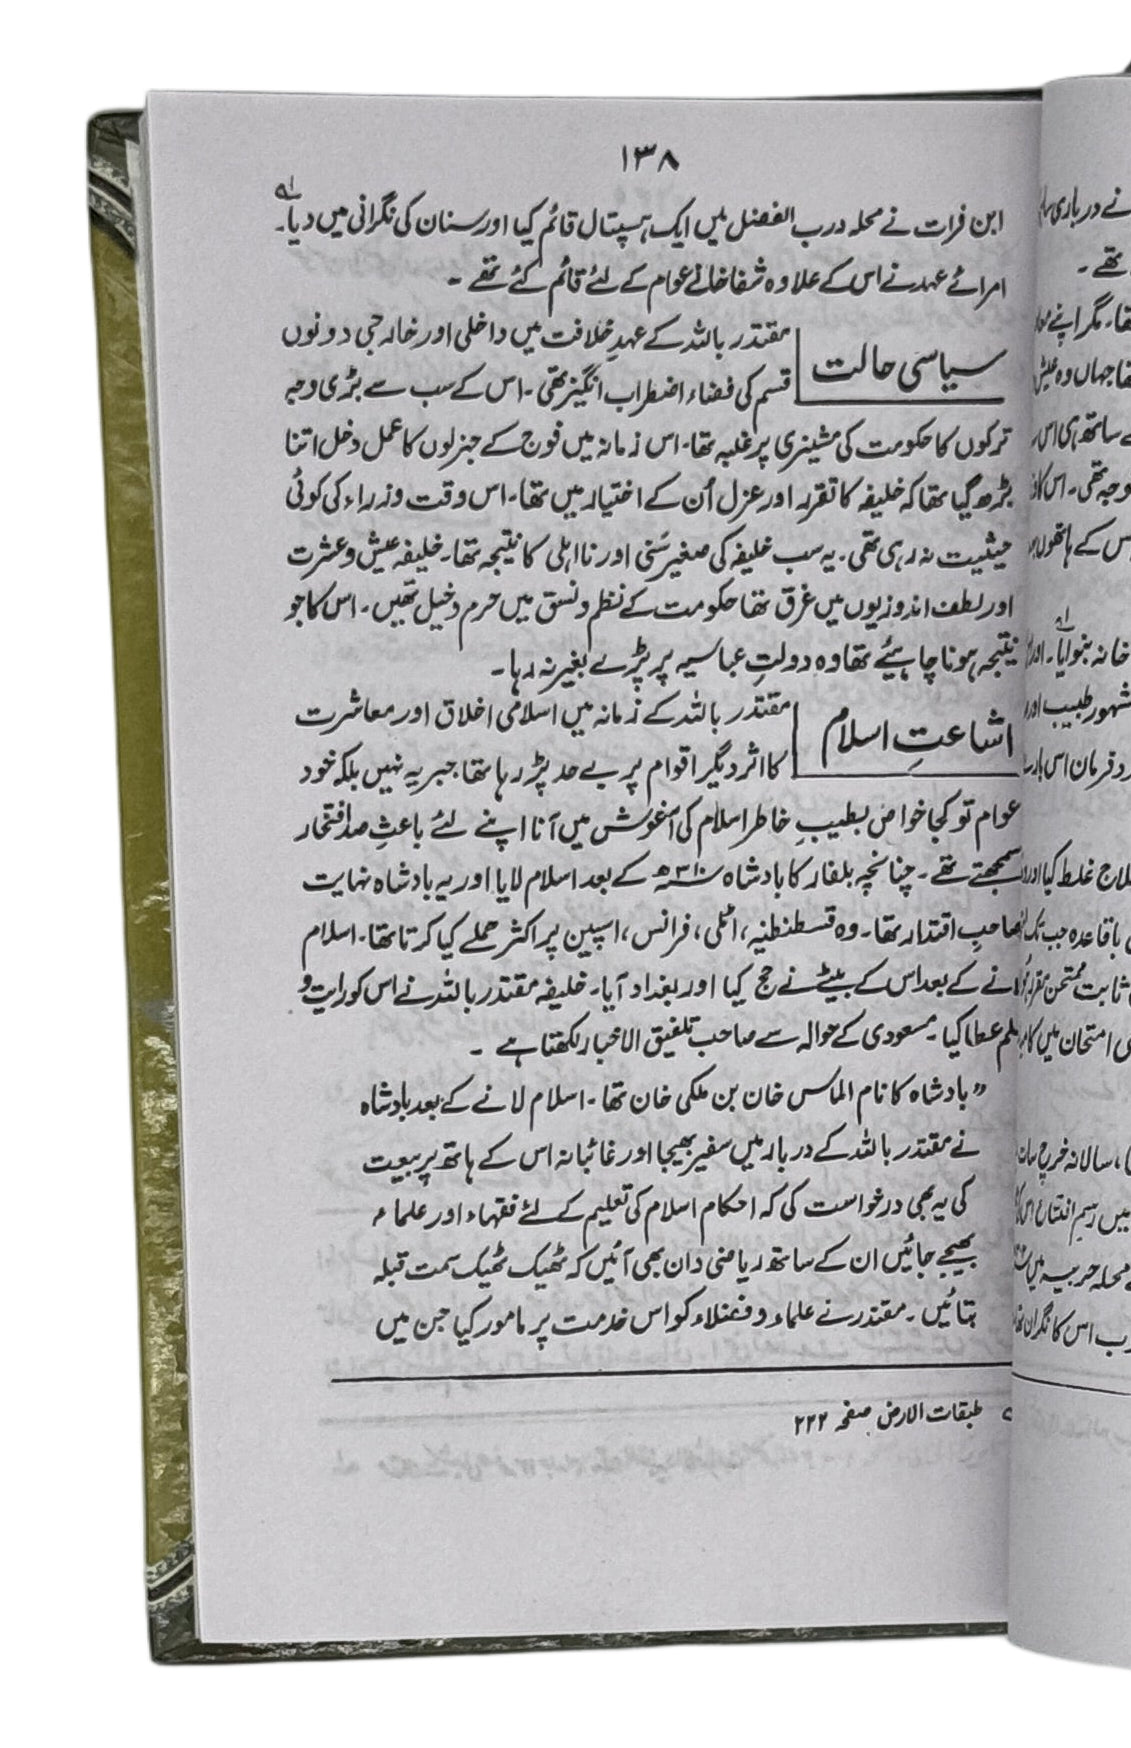 ۱۳۸
ابن فرات نے محلہ درب الفضل میں ایک ہسپتال قائم کیا اور سنان کی نگرانی میں دیا۔
امرائے عہد نے اس کے علاوہ شفا خانے عوام کے لئے قائم کئے تھے۔
سیاسی حالت
مقتدر باللہ کے عہدِ خلافت میں داخلی اور خارجی دونوں
قسم کی فضاء اضطراب انگیز تھی۔ اس کے سب سے بڑی وجہ
ترکوں کا حکومت کی مشینری پر غلبہ تھا۔ اس زمانہ میں فوج کے جنرلوں کا عمل دخل اتنا
بڑھ گیا تھا کہ خلیفہ کا تقرر اور عزل اُن کے اختیار میں تھا۔ اس وقت وزراء کی کوئی
حیثیت نہ رہی تھی۔ یہ سب خلیفہ کی صغیر سَنی اور نااہلی کا نتیجہ تھا۔ خلیفہ عیش و عشرت
اور لطف اندوزیوں میں غرق تھا حکومت کے نظم و نسق میں حرم دخیل تھیں۔ اس کا جو
نتیجہ ہونا چاہیئے تھا وہ دولتِ عباسیہ پر پڑے بغیر نہ رہا۔
اشاعتِ اسلام
مقتدر باللہ کے زمانہ میں اسلامی اخلاق اور معاشرت
کا اثر دیگر اقوام پر بے حد پڑ رہا تھا جبریہ نہیں بلکہ خود
عوام تو کجا خواص بطیبِ خاطر اسلام کی آغوش میں آنا اپنے لئے باعثِ صد افتخار
سمجھتے تھے۔ چنانچہ بلغار کا بادشاہ ۳۱۰ھ کے بعد اسلام لایا اور یہ بادشاہ نہایت
صاحبِ اقتدار تھا۔ وہ قسطنطنیہ، اٹلی، فرانس، اسپین پر اکثر حملے کیا کرتا تھا۔ اسلام
لانے کے بعد اس کے بیٹے نے حج کیا اور بغداد آیا۔ خلیفہ مقتدر باللہ نے اس کو رایت و
علم عطا کیا۔ مسعودی کے حوالہ سے صاحب تلفیق الاخبار لکھتا ہے۔
"بادشاہ کا نام الماس خان بن ملکی خان تھا۔ اسلام لانے کے بعد بادشاہ
نے مقتدر باللہ کے دربار میں سفیر بھیجا اور غائبانہ اس کے ہاتھ پر بیعت
کی یہ بھی درخواست کی کہ احکام اسلام کی تعلیم کے لئے فقہاء اور علماء
بھیجے جائیں ان کے ساتھ ریاضی دان بھی آئیں کہ ٹھیک ٹھیک سمت قبلہ
بتائیں۔ مقتدر نے علماء و فضلاء کو اس خدمت پر مامور کیا جن میں
طبقات الارض صفحہ ۲۲۲